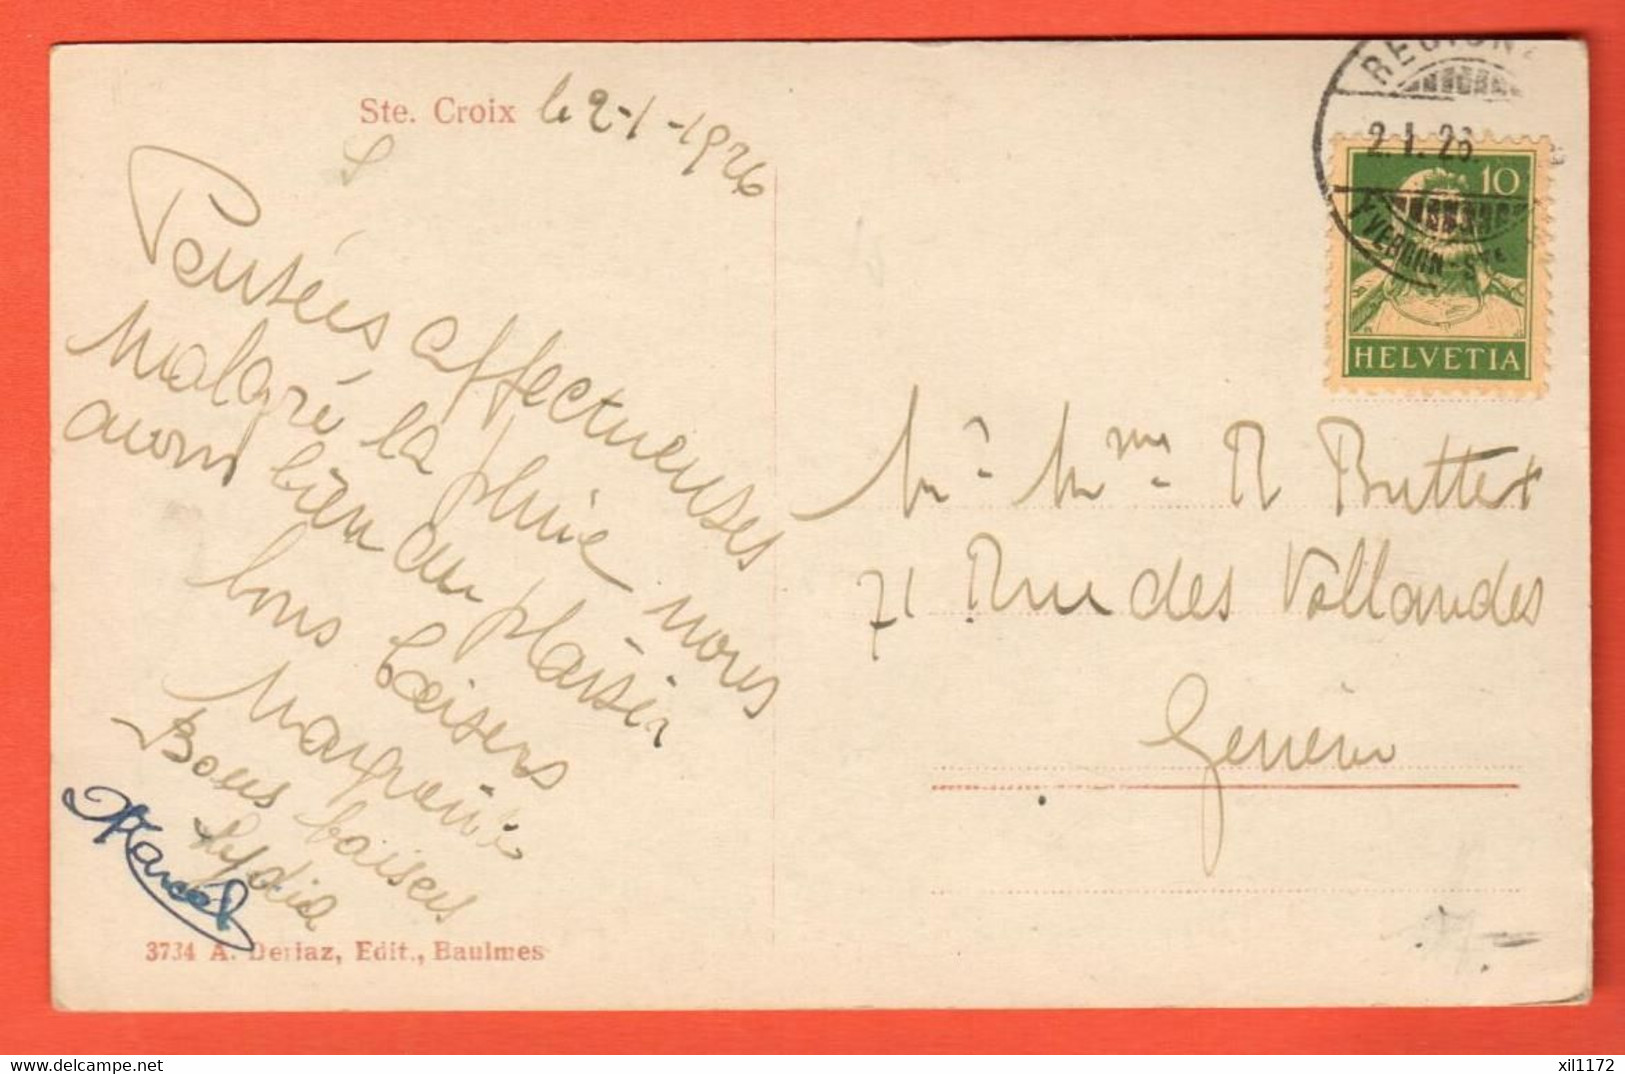 Ste. Croix le 2-1-1926
Pensées affectueuses
Malgré la pluie nous
avons bien du plaisir
bons baisers
Marguerite
Bons baisers
Lydia
Marcel
3734 A. Deriaz, Edit., Baulmes
2.1.26.
YVERDON-STE
10
HELVETIA
Mr Mme R Buttex
71 Rue des Vollandes
Genève
delcampe.net
xil1172